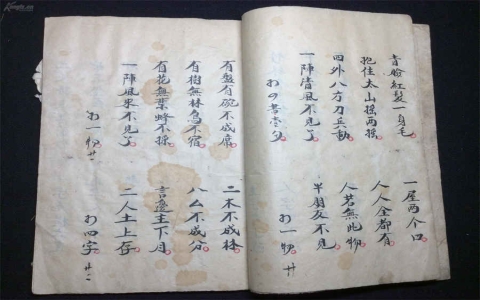 青臉紅髮一身毛
抱住太山摇两摇
四外八方刀兵動
一陣清風不見了
打四書壹句
一屋两个口
人人全都有
人若無此物
半朋友不見
打一物 廿
有盤有碗不成席
有樹無林鳥不宿
有花無葉蜂不採
一陣風來不見了
打一物 廿一
二木不成林
八厶不成分
言邊主下月
二人土上存
打四字 廿二